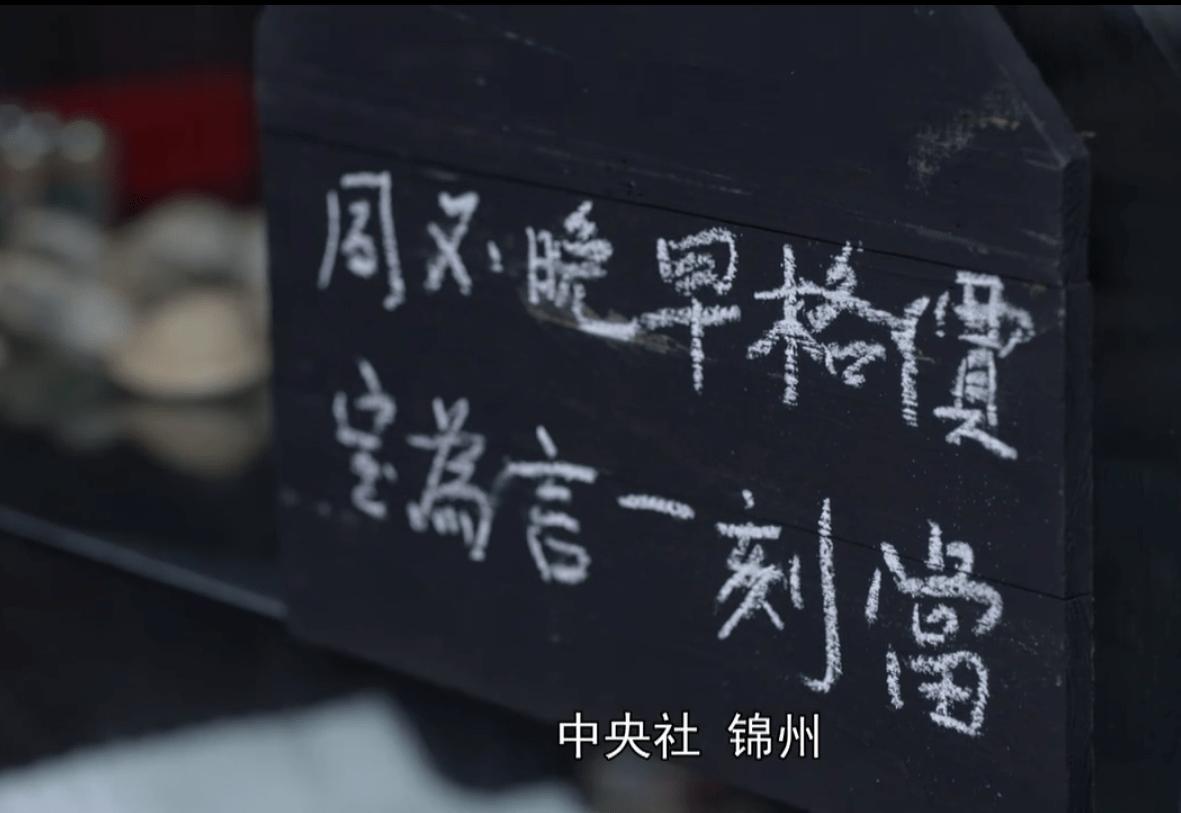 價格早晚不同
當刻一言為定
中央社 锦州